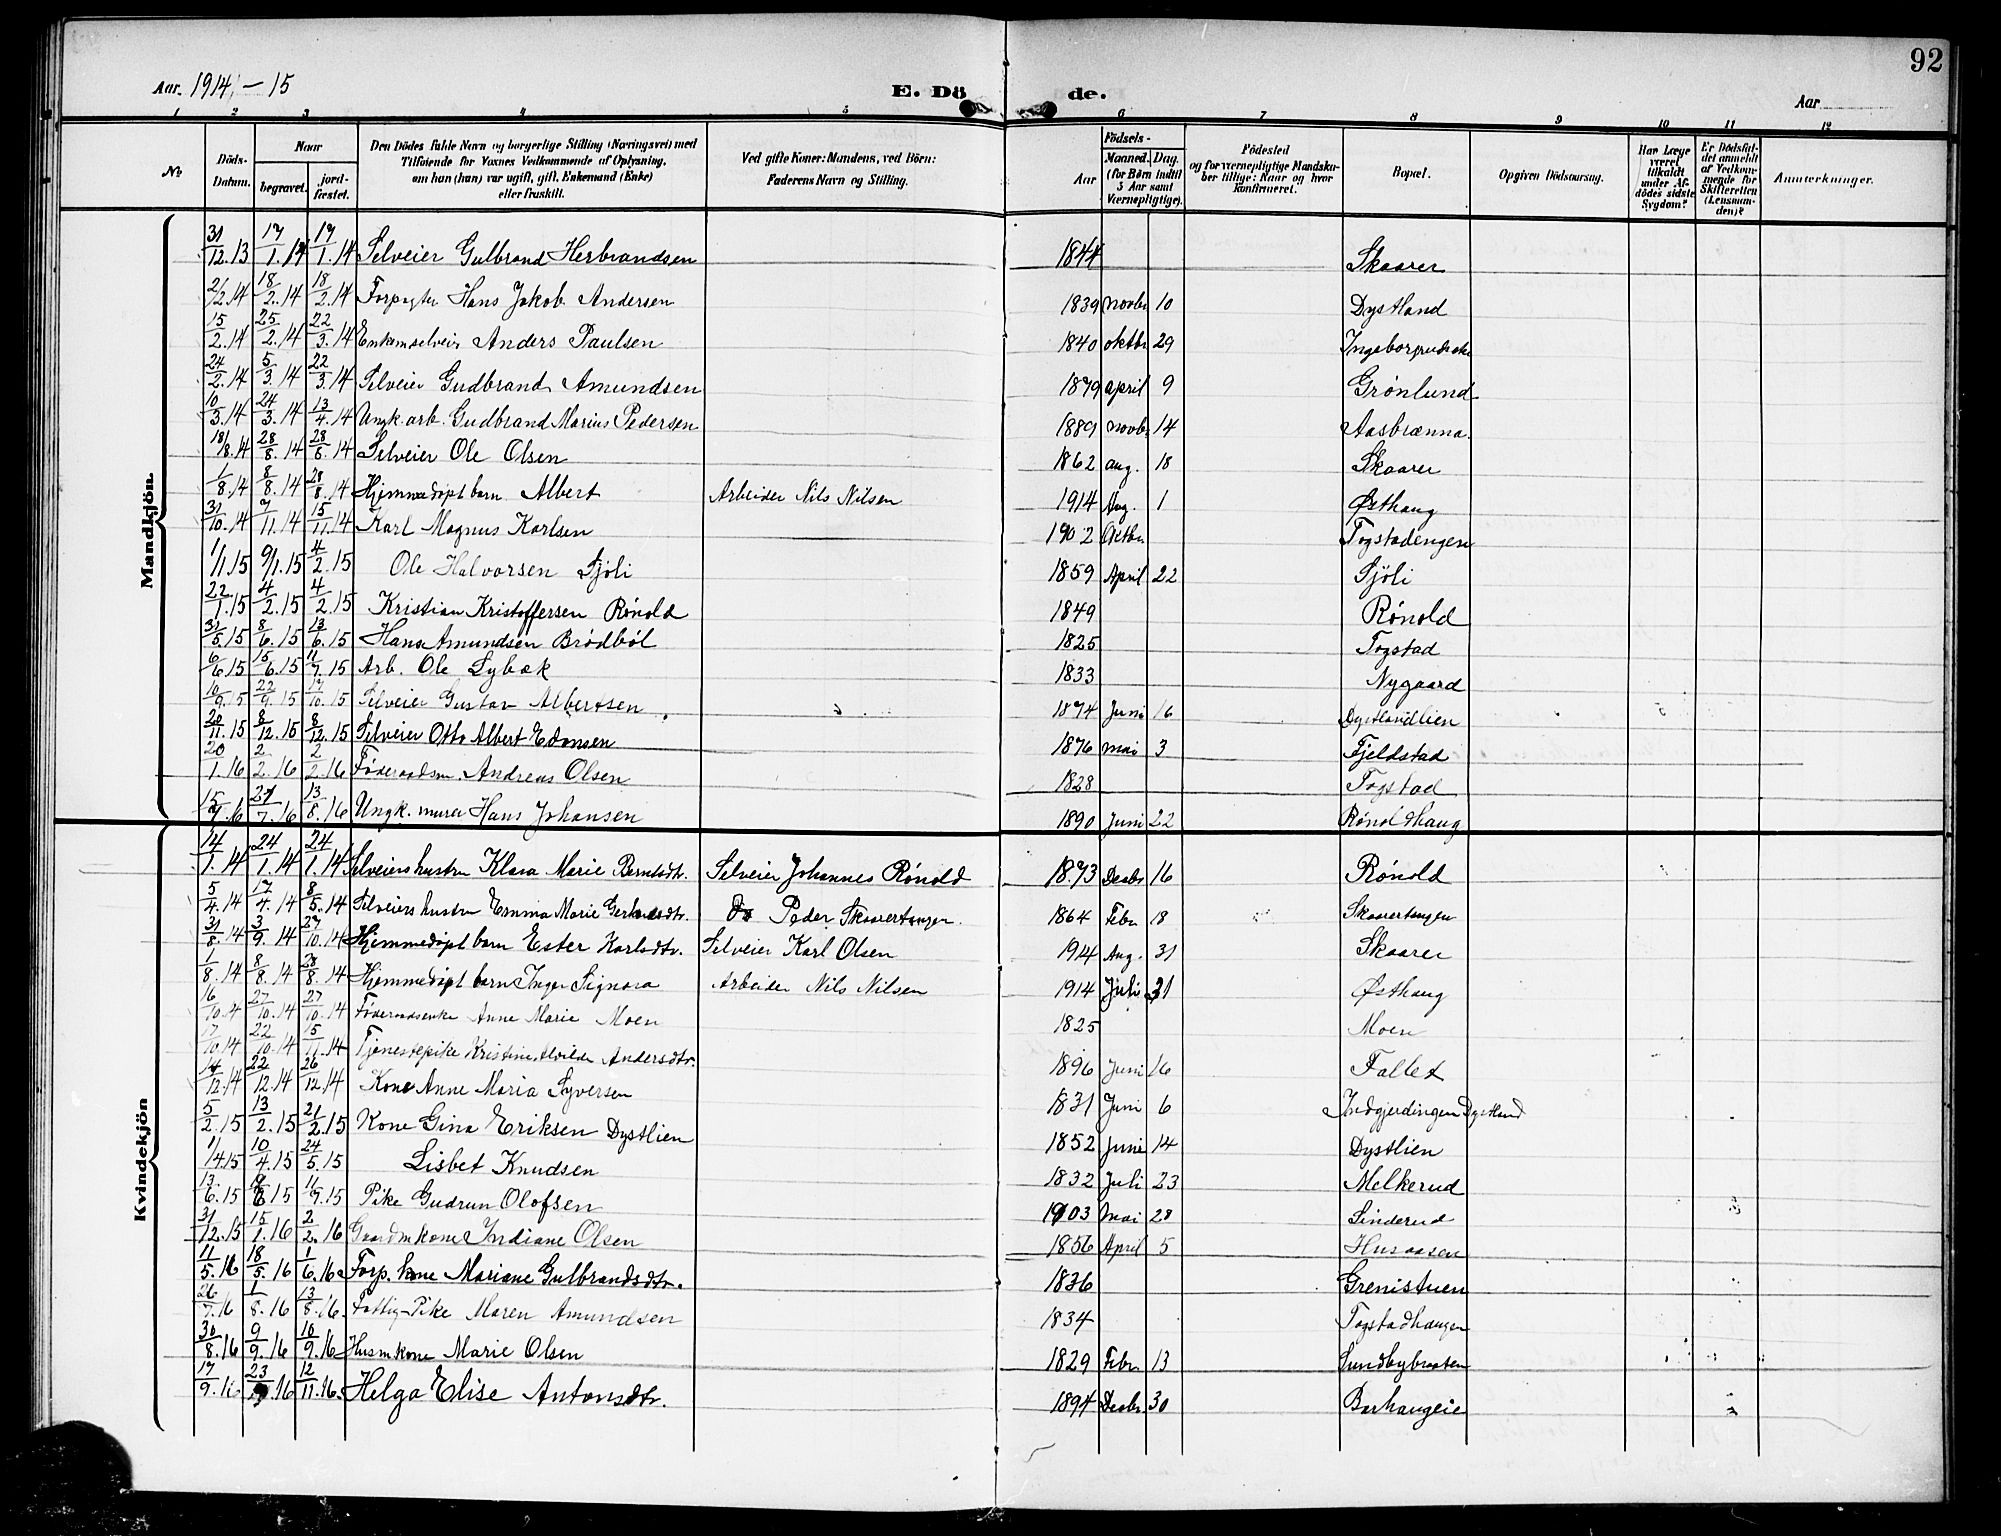 92
Aar. 1914 – 15
E. Dö
de.
Aar
1 2 3 4 5 6 7 8 9 10 11 12
No
Döds-
Datum.
Naar
begravet.
jord-
fæstet.
Den Dödes fulde Navn og borgerlige Stilling (Næringsvei) med
Tilföiende for Voxnes Vedkommende af Oplysning,
om han (hun) var ugift, gift, Enkemand (Enke)
eller fraskilt.
Ved gifte Koner: Mandens, ved Börn:
Faderens Navn og Stilling.
Födsels-
Aar
Maaned. Dag.
(for Børn indtil
3 Aar samt
Værnepligtige).
Födested
og for værnepligtige Mandsku-
ber tillige: Naar og hvor
konfirmeret.
Bopæl.
Opgiven Dödsaarsag.
Har Læge
været
tilkaldt
under Af-
dödes sidste
Sygdom?
Er Dödsfal-
det anmeldt
af Vedkom-
mende for
Skifteretten
(Lensman-
den)?
Anmærkninger.
Mandkjön.
31/12.13 17/1.14 17/1.14 Selveier Gulbrand Herbrandsen 1844 Skaarer
2/2.14 18/2.14 18/2.14 Forpagter Hans Jakob Andersen 1839 Novbr 10 Dystland
15/2.14 25/2.14 22/3.14 Anders Paulsen 1840 oktbr 29
24/2.14 5/3.14 22/3.14 Selveier Gudbrand Amundsen 1879 april 9 Grønlund
10/3.14 24/3.14 13/4.14 Ungk. arb. Gudbrand Marius Pedersen 1889 novbr 14 Aasbrænna.
18/8.14 28/8.14 28/8.14 Selveier Ole Olsen 1862 aug. 18 Skaarer
1/8.14 8/8.14 28/8.14 Hjemmedøpt barn Albert Arbeider Nils Nilsen 1914 Aug. 1 Østhaug
31/10.14 7/11.14 15/11.14 Karl Magnus Karlsen 1902 Oktbr Togstadengen
1/1.15 9/1.15 4/2.15 Ole Halvorsen Sjöli 1859 April 22 Sjöli
22/1.15 4/2.15 4/2.15 Kristian Kristoffersen Rónold 1849 Rónold
31/5.15 8/6.15 13/6.15 Hans Amundsen Brödböl 1825 Togstad
6/6.15 15/6.15 11/7.15 Arb. Ole Lybæk 1833 Nygaard
10/9.15 22/9.15 17/10.15 Selveier Gustav Albertsen 1874 Juni 16 Dystlandlien
20/11.15 8/12.15 8/12.15 Selveier Otto Albert Edvnsen 1876 mai 3 Fjeldstad
20/1.16 2/2.16 2/2.16 Föderaadsm. Andreas Olsen 1828 Togstad
15/7.16 27/7.16 13/8.16 Ungk. murer Hans Johansen 1890 Juni 22 Rónoldhaug
Kvindekjön
14/1.14 24/1.14 24/1.14 Selveiers hustru Klara Marie Berntsdtr. Selveier Johannes Rónold 1873 Decbr 16 Rónold
5/4.14 17/4.14 8/5.14 Selveiers hustru Emma Marie Do Peder Skaarertangen. 1864 Febr 18 Skaarertangen
31/8.14 3/9.14 27/10.14 Hjemmedøpt barn Ester Karlsdtr. Selveier Karl Olsen 1914 Aug. 31 Skaarer
1/8.14 8/8.14 28/8.14 Hjemmedøpt barn Inger Signora Arbeider Nils Nilsen 1914 Juli 31 Østhaug
16/10.14 27/10.14 27/10.14 Föderaadsenke Anne Marie Moen 1825 Moen
17/10.14 22/10.14 15/11.14 Tjenestepike Kristine Alvilde Andersdtr. 1896 Juni 16 Fallet
14/12.14 22/12.14 26/12.14 Kone Anne Maria Syversen 1831 Juni 6 Indgjerdingen Dystland
5/2.15 13/2.15 21/2.15 Kone Gina Eriksen Dystlien 1852 Juni 14 Dystlien
1/4.15 10/4.15 24/5.15 Lisbet Knudsen 1832 Juli 23 Melkerud
13/6.15 11/7.15 Pike Gudrun Olofsen 1903 Mai 28 Linderud
31/12.15 15/1.16 2/2.16 Gaardmkone Indiane Olsen 1856 April 5 Husaasen
11/5.16 18/5.16 1/6.16 Forp. kone Mariane Gulbrandsdtr. 1836 Grenistuen
26/7.16 1/8.16 13/8.16. Fattig-Pike Maren Amundsen 1834 Togstadhaugen
30/8.16 9/9.16 10/9.16 Husmkone Marie Olsen 1829 Febr 13 Sundbybraaten
17/9.16 23 16 12/11.16. Helga Elise Antonsdtr. 1894 Decbr. 30 Borhaugeie